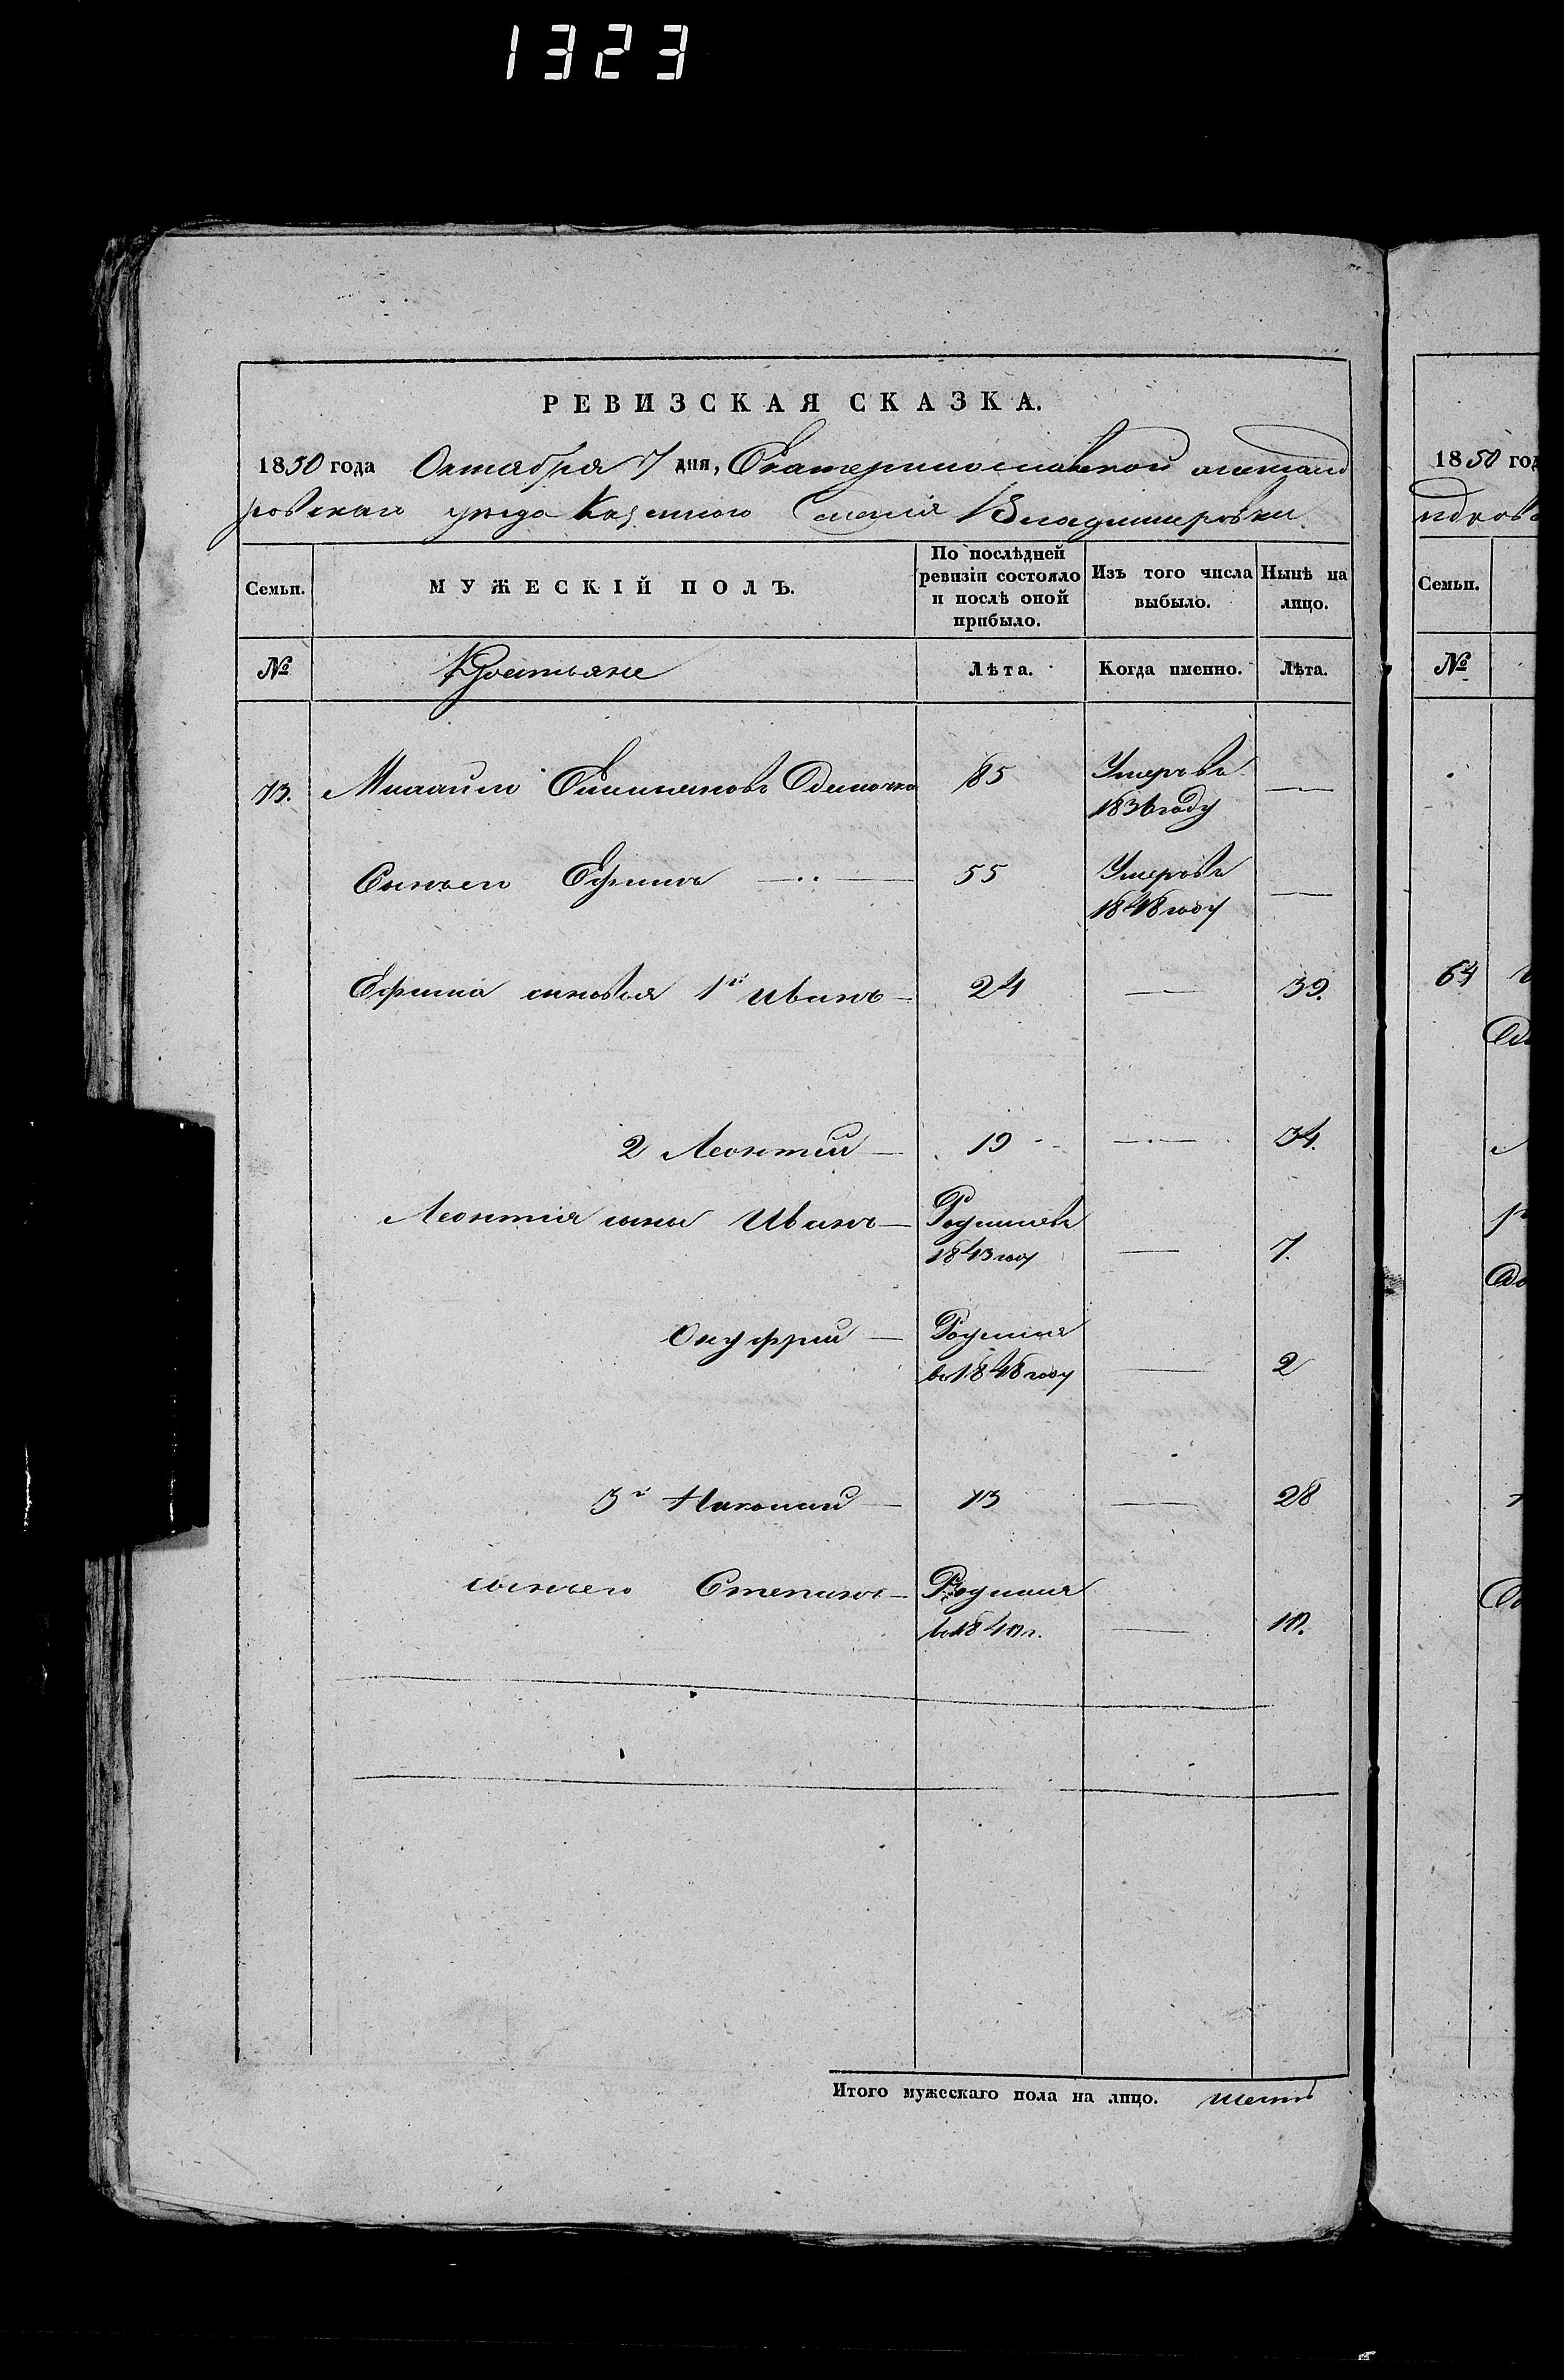 1323
РЕВИЗСКАЯ СКАЗКА.
1850 года Октября 7 дня, Екатеринославской александ
ровскаго уезда Казенного Селенія Владимировки
Семьи. МУЖЕСКІЙ ПОЛЪ. По послѣдней ревизіи состояло и послѣ оной прибыло. Изъ того числа выбыло. Нынѣ на лицо.
№ Крестьяне Лѣта. Когда именно. Лѣта.
73. Михайло Емельяновъ Одиночка 85 Умеръ въ —
1836 году
Сынъ его Ефимъ — .. — 55 Умеръ въ —
1848 году
Ефима сыновья 1й Иванъ — 24 — 39.
2 Леонтий — 19 — 34.
Леонтія сыны Иванъ — Родился въ
1843 году — 7.
Онуфрий — Родился
въ 1848 году — 2
3й Николай — 13 — 28
сынъ его Степанъ — Родился
въ 1840 г. — 10.
Итого мужескаго пола на лицо. шесть
1850 год
Семьи.
№
64